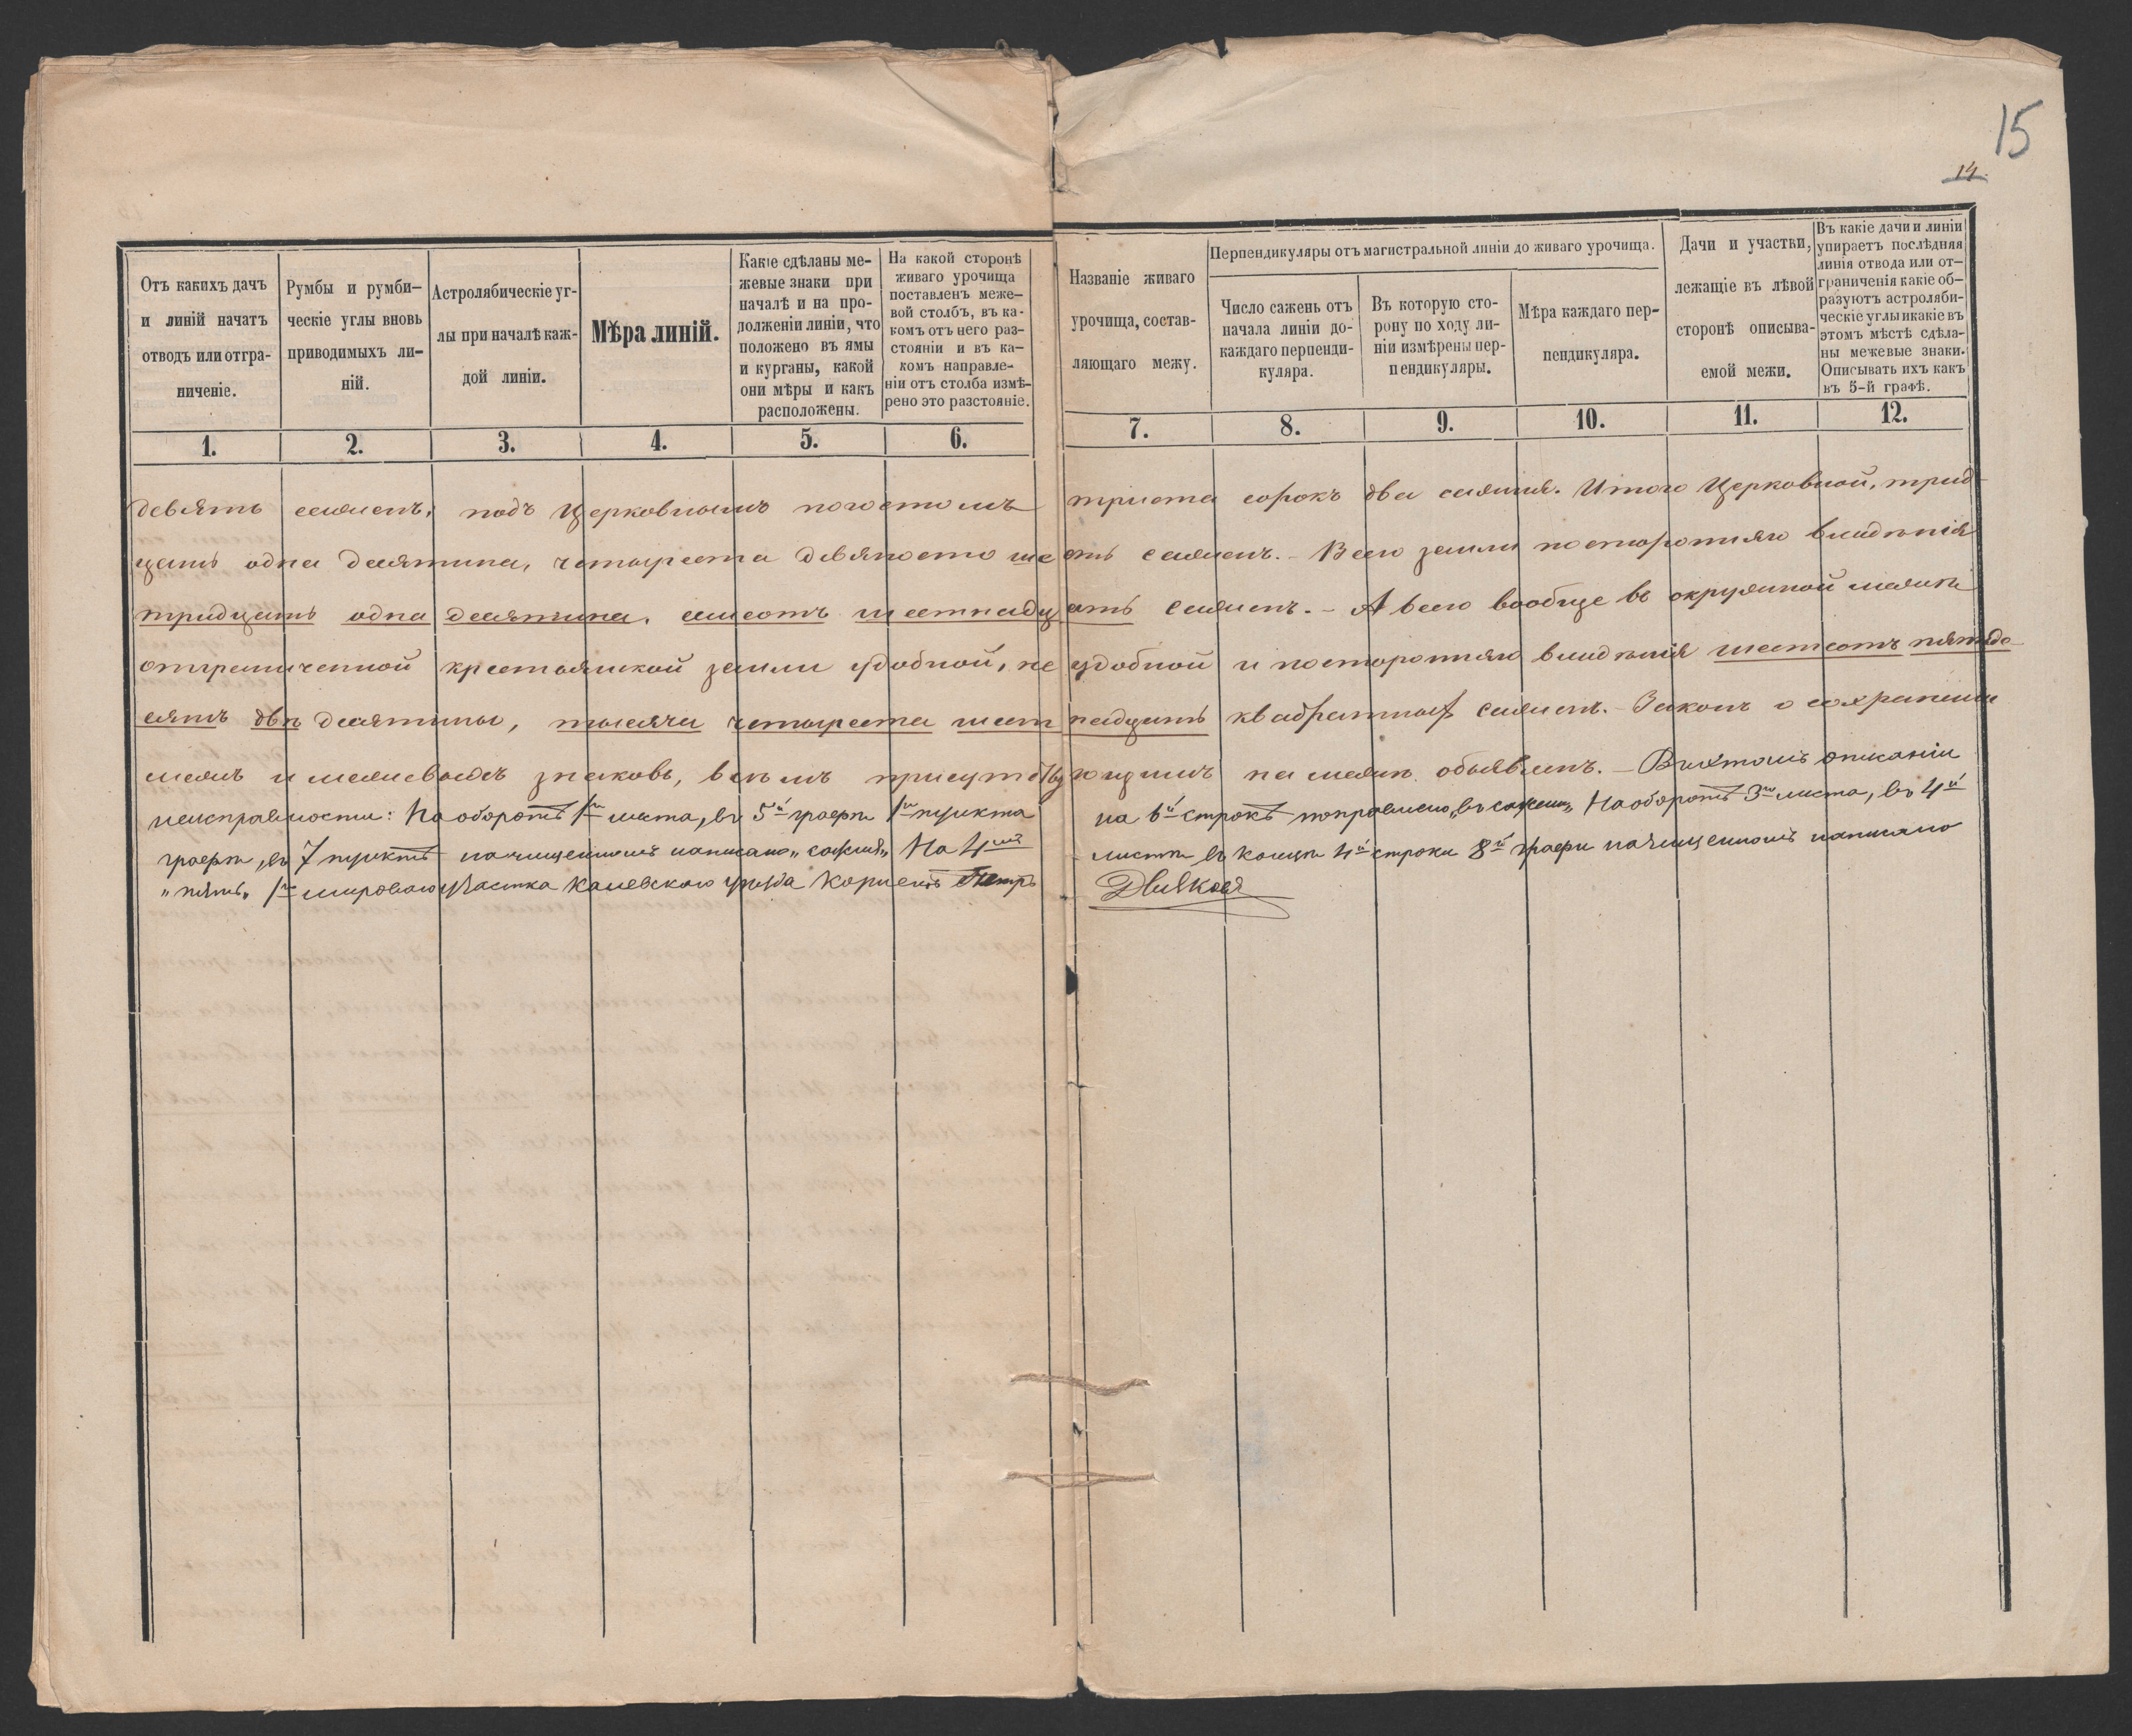 15
14.
Отъ какихъ дачъ
и линій начатъ
отводъ или отгра-
ниченіе.
Румбы и румби-
ческіе углы вновь
приводимыхъ ли-
ній.
Астролябическіе уг-
лы при началѣ каж-
дой линіи.
Мѣра линій.
Какіе сдѣланы ме-
жевые знаки при
началѣ и на про-
долженіи линіи, что
положено въ ямы
и курганы, какой
они мѣры и какъ
расположены.
На какой сторонѣ
живаго урочища
поставленъ меже-
вой столбъ, въ ка-
комъ отъ него раз-
стояніи и въ ка-
комъ направле-
ніи отъ столба измѣ-
рено это разстояніе.
Названіе живаго
урочища, состав-
ляющаго межу.
Перпендикуляры отъ магистральной линіи до живаго урочища.
Число сажень отъ
начала линіи до-
каждаго перпенди-
куляра.
Въ которую сто-
рону по ходу ли-
ніи измѣрены пер-
пендикуляры.
Мѣра каждаго пер-
пендикуляра.
Дачи и участки,
лежащіе въ лѣвой
сторонѣ описыва-
емой межи.
Въ какіе дачи и линіи
упираетъ послѣдняя
линія отвода или от-
граниченія какіе об-
разуютъ астроляби-
ческіе углы икакіе въ
этомъ мѣстѣ сдѣла-
ны межевые знаки.
Описывать ихъ какъ
въ 5-й графѣ.
1. 2. 3. 4. 5. 6. 7. 8. 9. 10. 11. 12.
девять сажень, подъ Церковнымъ погостомъ триста сорокъ два сажня. Итого Церковной, трид-
цать одна десятина, четыреста девяносто шесть сажень. - Всего земли посторонняго владѣнія
тридцать одна десятина, семсотъ шестнадцать сажень. - А всего вообще въ окружной межѣ
отграниченной крестьянской земли удобной, неудобной и посторонняго владѣнія шестсотъ пятьде-
сятъ двѣ десятины, тысяча четыреста шестнадцать квадратныхъ сажень. - Законъ о сохраненіи
межъ и межевыхъ знаковъ, всѣмъ присутствующимъ на межѣ объявленъ. - Въ этомъ описаніи
неисправности: На оборотѣ 1го листа, въ 5й графѣ 1го пункта на 6й строкѣ поправлено „въ сажени„ На оборотѣ 3го листа, въ 4й
графѣ, въ 7 пунктѣ по чищенному написано „сажня„ На 4мъ листѣ въ концѣ 4й строки 8й графы по чищенному написано
„пять„ 1го мироваго участка Каневскаго уѣзда Корнетъ Петръ